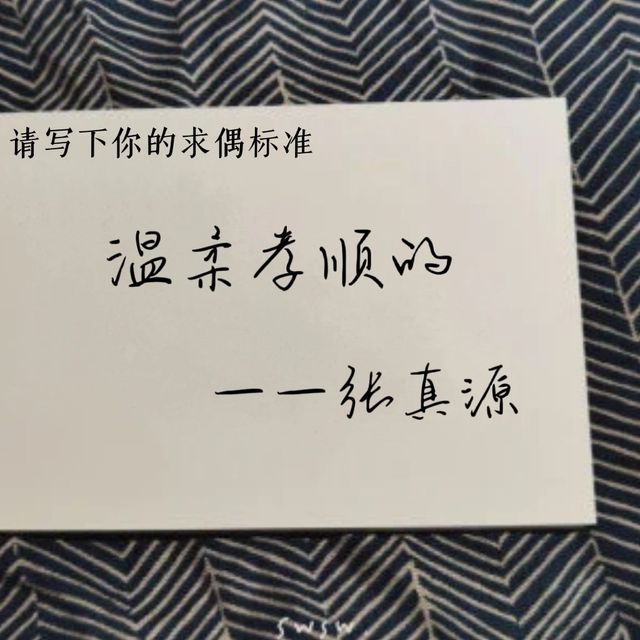 请写下你的求偶标准
温柔孝顺的
——张真源
swsw.